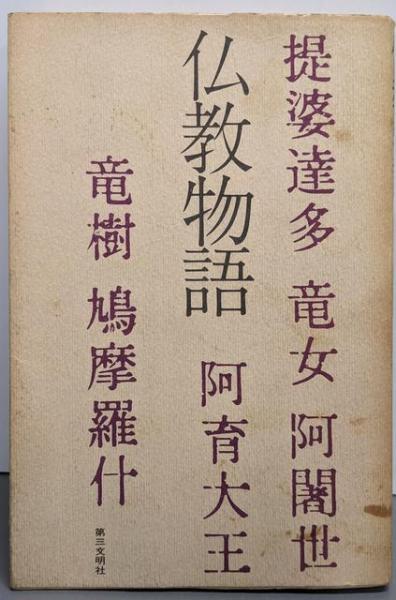 提婆達多 竜女 阿闍世
仏教物語 阿育大王
竜樹 鳩摩羅什
第三文明社